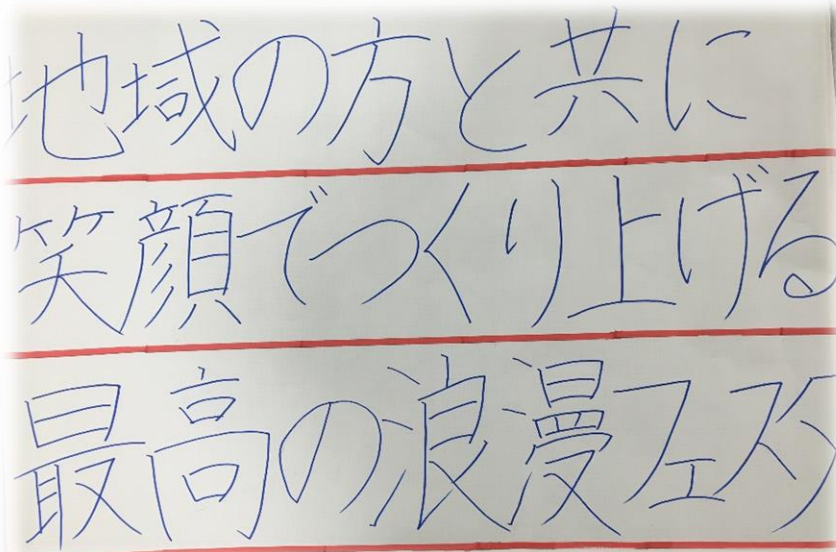 地域の方と共に
笑顔でつくり上げる
最高の浪漫フェスタ